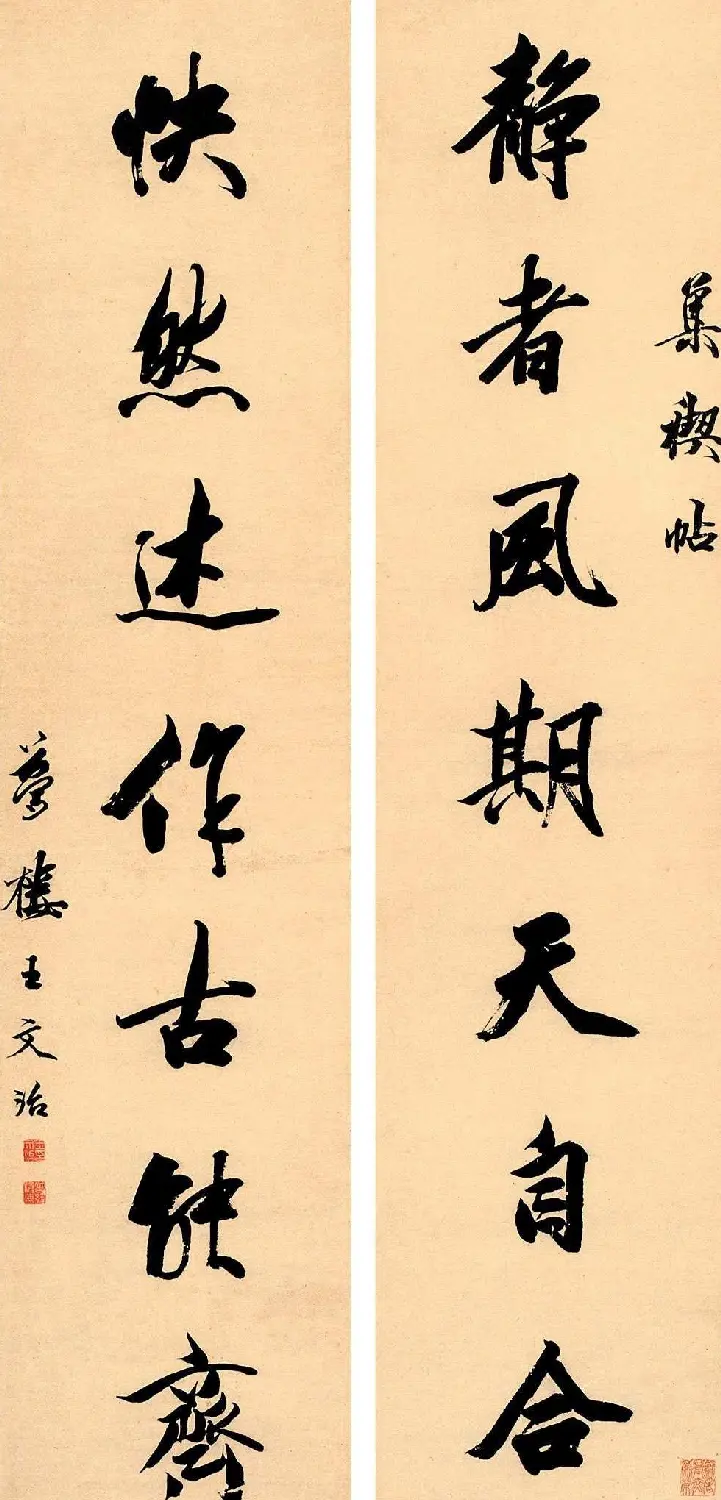 集禊帖
靜者風期天自合
快然述作古能齊
夢樓王文治